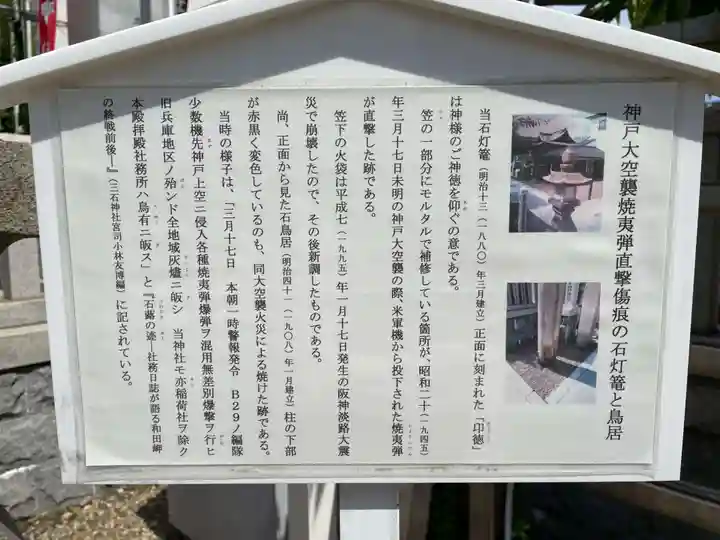 神戸大空襲焼夷弾直撃傷痕の石灯篭と鳥居
当石灯篭（明治十三（一八八〇）年三月建立）正面に刻まれた「卬徳」
は神様のご神徳を仰ぐの意である。
笠の一部分にモルタルで補修している箇所が、昭和二十（一九四五）
年三月十七日未明の神戸大空襲の際、米軍機から投下された焼夷弾
が直撃した跡である。
笠下の火袋は平成七（一九九五）年一月十七日発生の阪神淡路大震
災で崩壊したので、その後新調したものである。
尚、正面から見た石鳥居（明治四十一（一九〇八）年一月建立）柱の下部
が赤黒く変色しているのも、同大空襲火災による焼けた跡である。
当時の様子は、「三月十七日 本朝一時警報発令 B29ノ編隊
少数機先神戸上空ニ侵入各種焼夷弾爆弾ヲ混用無差別爆撃ヲ行ヒ
旧兵庫地区ノ殆ンド全地域灰燼ニ皈シ 当神社モ亦稲荷社ヲ除ク
本殿拝殿社務所ハ烏有ニ皈ス」と『石蕗の迹―社務日誌が語る和田岬
の終戦前後―』（三石神社宮司小林友博編）に記されている。